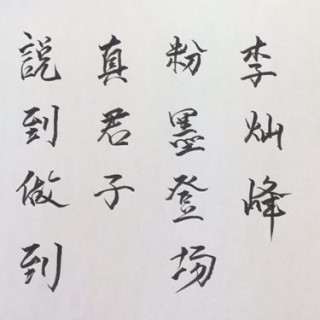 李灿峰
粉墨登场
真君子
説到做到